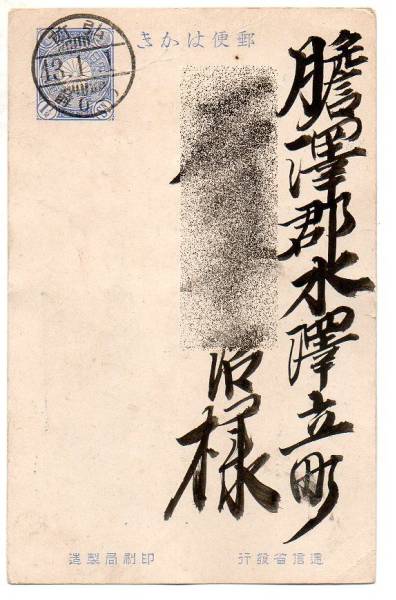 郵便はかき
膽澤郡水澤立町
治様
逓信省發行
印刷局製造
13.1